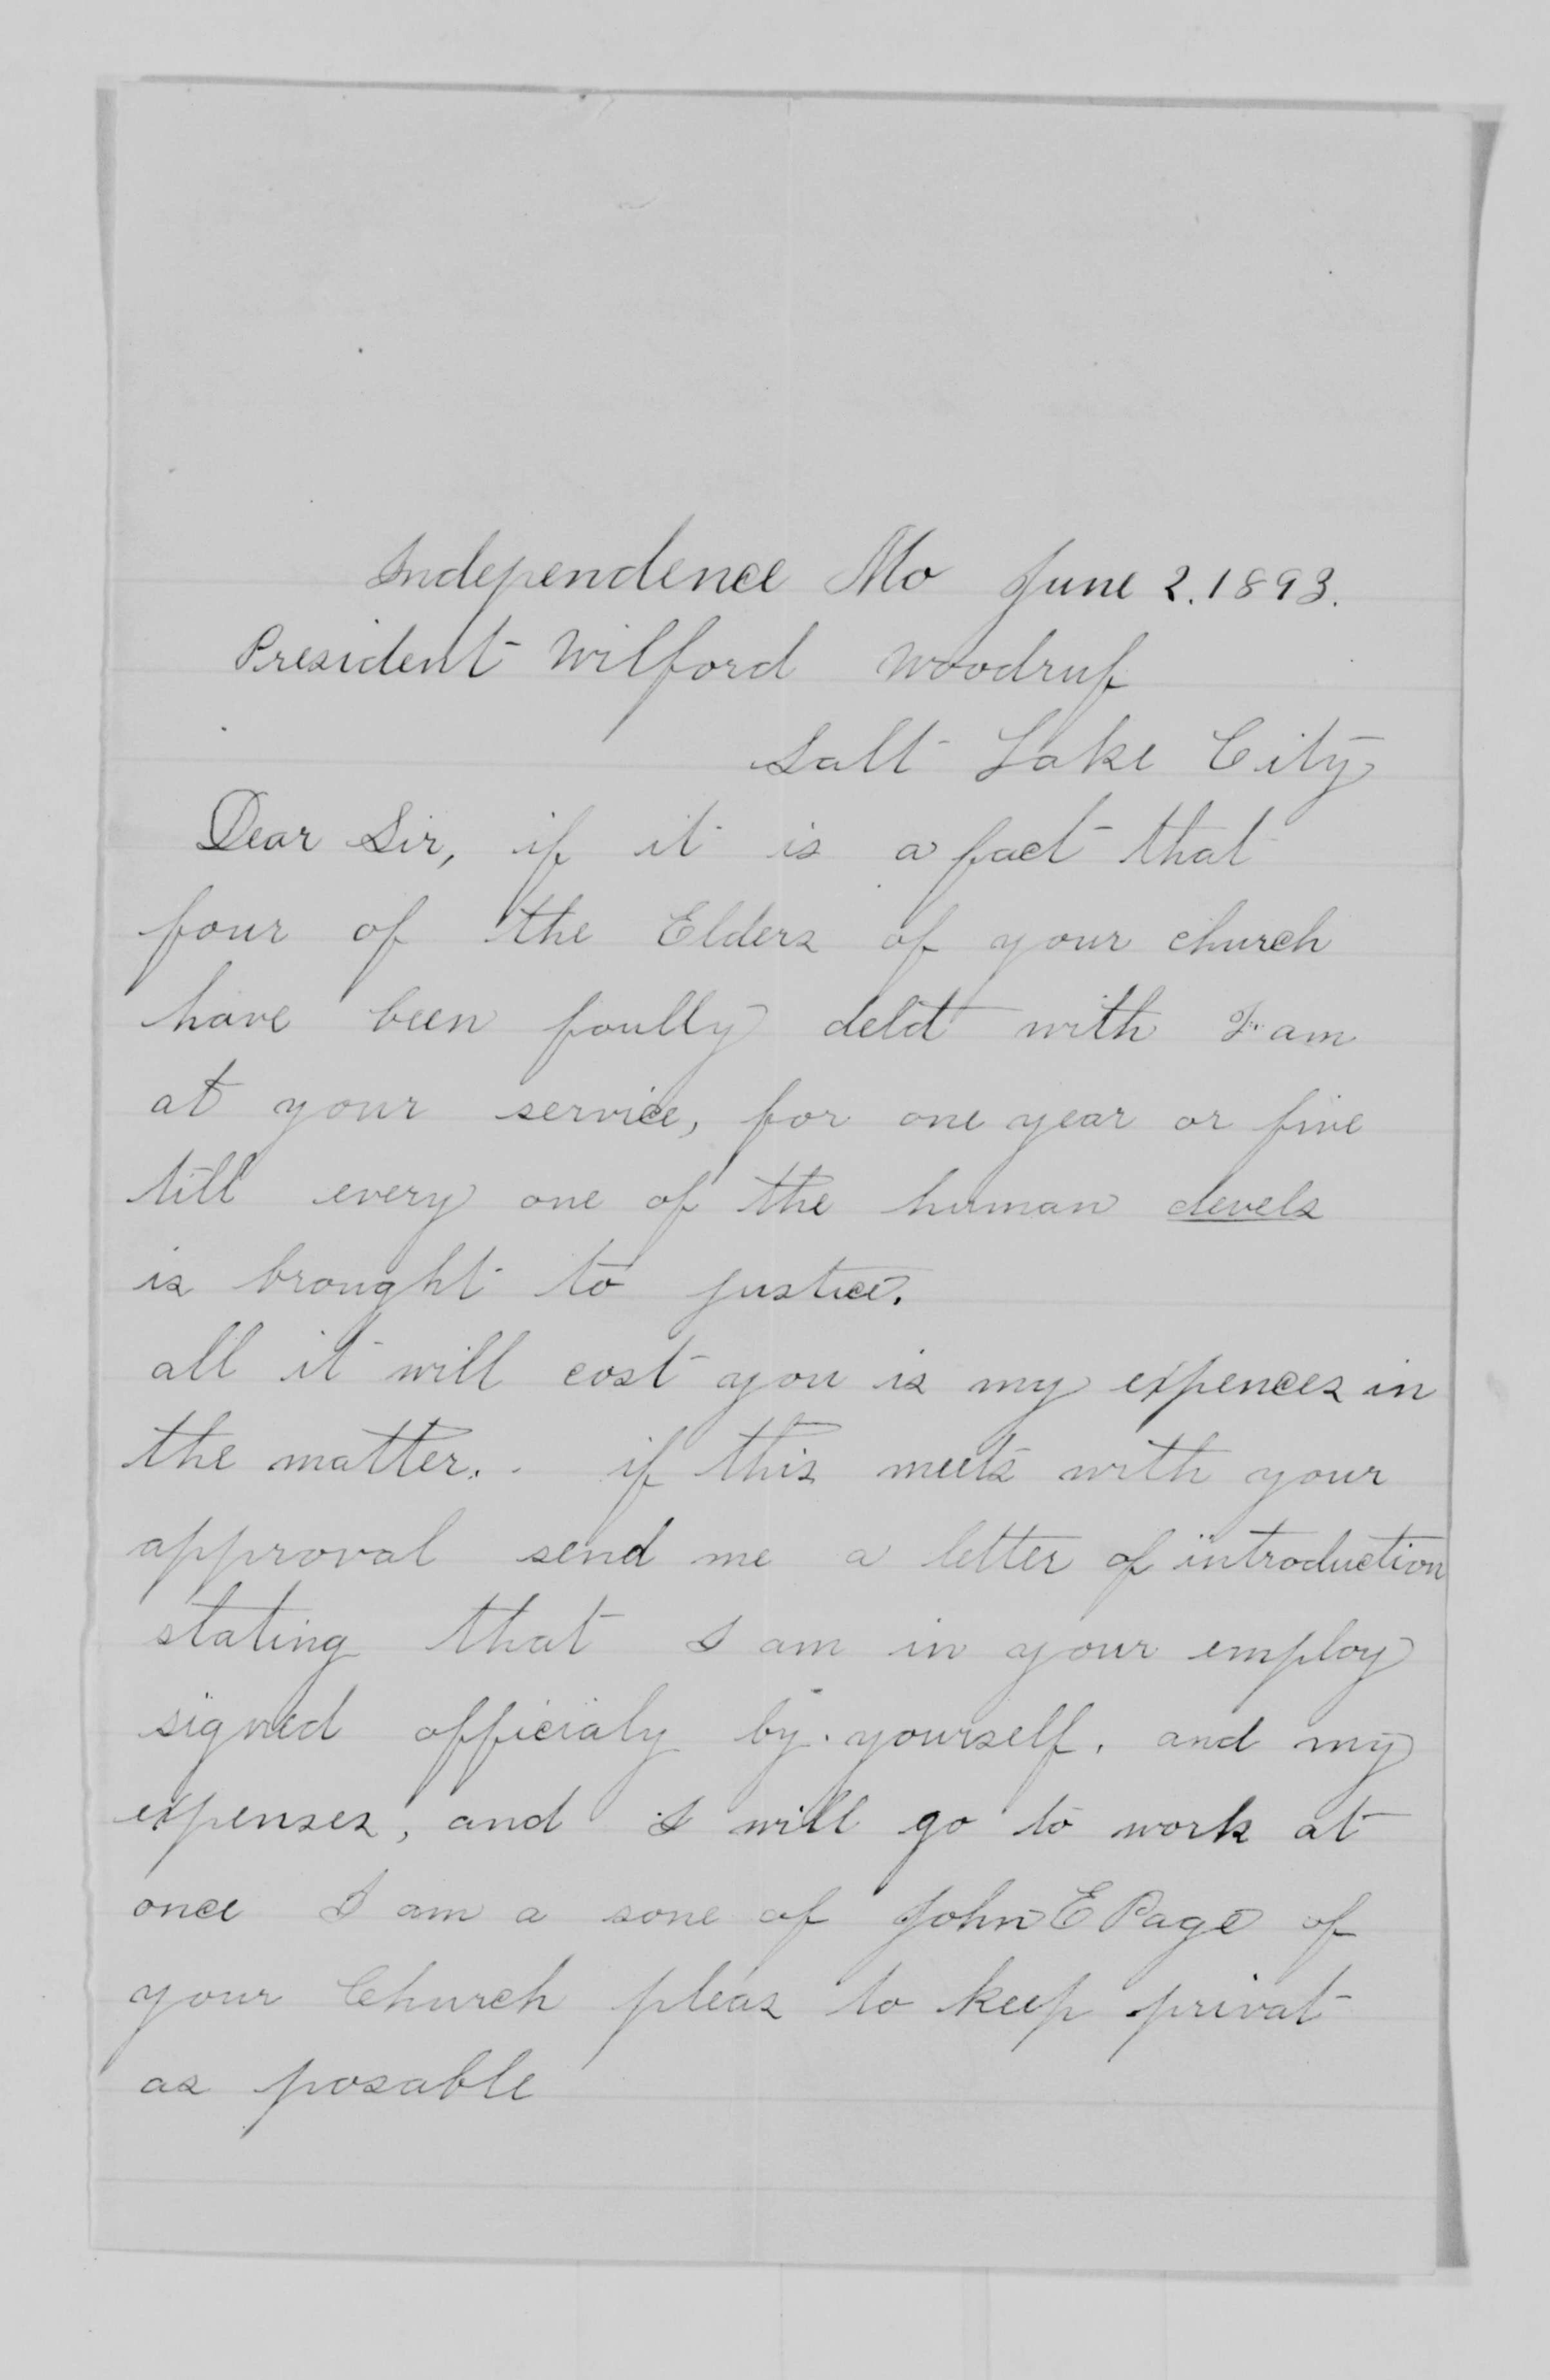 Independence Mo June 2. 1893.
President Wilford Woodruf
Salt Lake City
Dear Sir, if it is a fact that
four of the Elders of your church
have been foully delt with I am
at your service, for one year or five
till every one of the human devels
is brought to justice.
all it will cost you is my expences in
the matter. if this meets with your
approval send me a letter of introduction
stating that I am in your employ
signed officialy by yourself. and my
expenses, and I will go to work at
once I am a sone of John E Page of
your Church pleas to keep privat
as posable